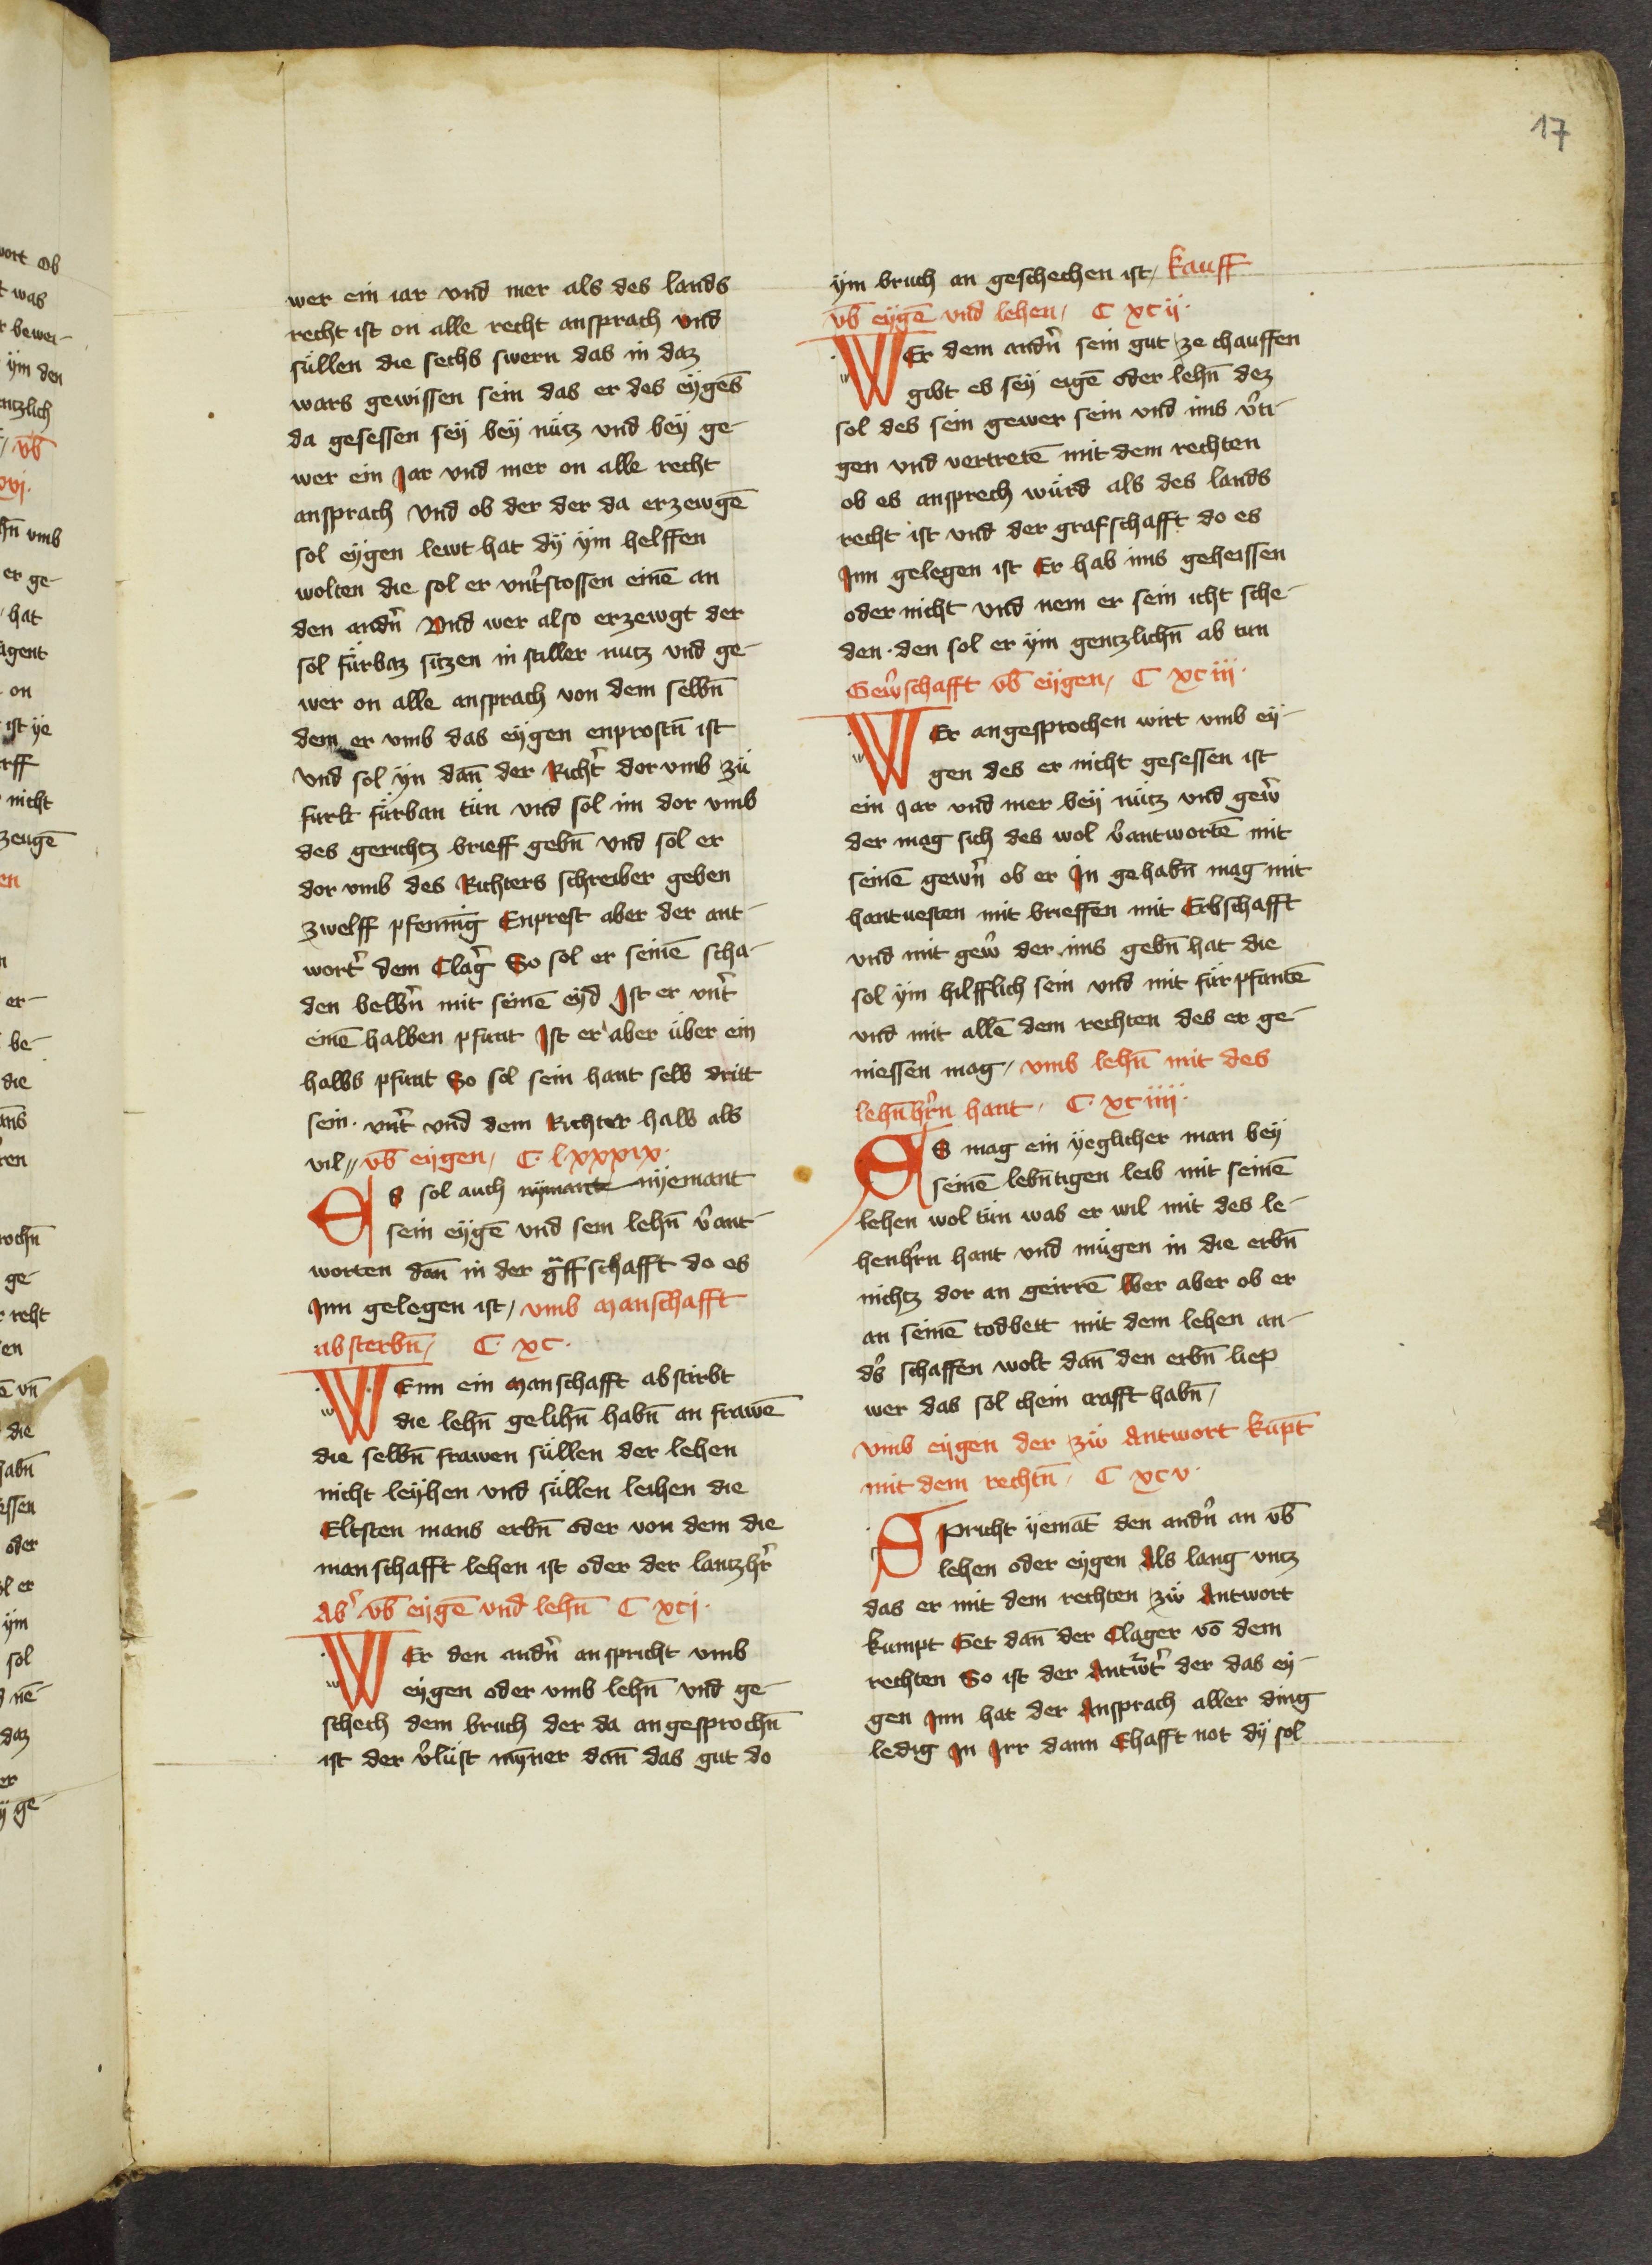 17
wer ein iar vnd mer als des lands
recht ist on alle recht ansprach vnd
süllen die sechs swern das in daz
wars gewissen sein das er des eÿgēs
da gesessen seÿ beÿ nütz vnd beÿ ge-
wer ein Jar vnd mer on alle recht
ansprach vnd ob der der da erzewgē
sol eÿgen lewt hat dÿ ÿm helffen
wolten die sol er vnt̄stossen einē an
den andn̄ Vnd wer also erzewgt der
sol fürbaz sitzen in stiller nutz vnd ge-
wer on alle ansprach von dem selbn̄
dem er vmb das eÿgen enprostn̄ ist
vnd sol ÿn dan̄ der Richt̄ dor vmb zü
fürbt fürban tün vnd sol im dor vmb
des gerichtz brieff gebn̄ vnd sol er
dor vmb des Richters schreiber geben
zwelff pfennīg Enprest aber der ant-
wort̄ dem Claḡ So sol er seinē scha-
den belbn̄ mit seinē eÿd Ist er vnt̄
einē halben pfunt Ist er aber über ein
halbs pfunt So sol sein hant selb dritt
sein. vnt̄ vnd dem Richter halb als
vil〃 vb̄ eÿgen, C. lxxxix.
ES sol auch nÿmant nÿemant
sein eÿgē vnd sein lehn̄ v̄ant-
worten dan̄ in der gffschafft do es
Inn gelegen ist, vmb manschafft
absterbn̄, C. xc.
WEnn ein manschafft abstirbt
die lehn̄ gelihn̄ habn̄ an frawē
die selbn̄ frawen süllen der lehen
nicht leÿhen vnd süllen leihen die
Eltsten mans erbn̄ oder von dem die
manschafft lehen ist oder der lantzhr̄
Ab̄ vb̄ eÿgē vnd lehn̄ C xcj.
WEr den andn̄ anspricht vmb
eÿgen oder vmb lehn̄ vnd ge-
schech dem bruch der da angesprochn̄
ist der v̄lüst mÿner dan̄ das gut do
ÿm bruch an geschechen ist, kauff
vb̄ eÿgē vnd lehen, C xcij.
WEr dem andn̄ sein gut ze chauffen
gibt es seÿ eigē oder lehn̄ dez
sol des sein gewer sein vnd ims v̄ti-
gen vnd vertretē mit dem rechten
ob es ansprech würd als des lands
recht ist vnd der grafschafft do es
Inn gelegen ist Er hab ims geheissen
oder nicht vnd nem er sein icht sche-
den. den sol er ÿm gentzlichn̄ ab tun
Gew̄schafft vb̄ eÿgen, C xciij.
WEr angesprochen wirt vmb eÿ-
gen des er nicht gesessen ist
ein Jar vnd mer beÿ nütz vnd gew̄
der mag sich des wol v̄antwortē mit
seinē gewn̄ ob er In gehabn̄ mag mit
hantuesten mit brieffen mit Erbschafft
vnd mit gew̄ der ims gebn̄ hat die
sol ÿm hilfflich sein vnd mit fürpfantē
vnd mit allē dem rechten des er ge-
niessen mag, vmb lehn̄ mit des
lehn̄hr̄n hant, C. xciiij.
ES mag ein ÿeglicher man beÿ
seinē lebn̄tigen leib mit seinē
lehen wol tün was er wil mit des le-
henhr̄n hant vnd mügen in die erbn̄
nichtz dor an geirrē Wer aber ob er
an seinē todbett mit dem lehen an-
ds̄ schaffen wolt dan̄ den erbn̄ liep
wer das sol chein crafft habn̄,
vmb eÿgen der zü Antwort kūpt
mit dem rechtn̄, C xcv.
SPricht ÿemāt den andn̄ an vb̄
lehen oder eÿgen Als lang vntz
das er mit dem rechten zü Antwort
kumpt Get dan̄ der Clager vō dem
rechten So ist der Antw̄t̄ der das eÿ-
gen Inn hat der Ansprach aller ding
ledig In Irr dann Ehafft not dÿ sol